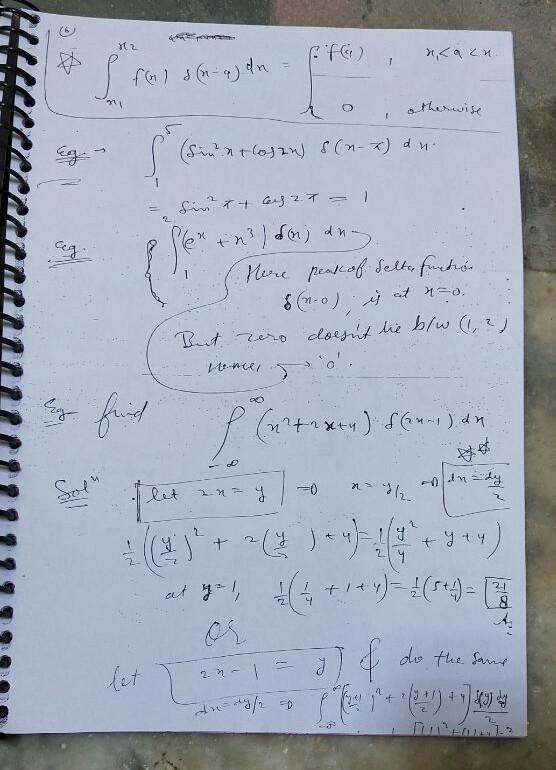 (6)
☆ ∫_{x1}^{x2} f(x) δ(x-a) dx = { f(a) , x1 < a < x
0 , otherwise
eg → ∫_1^5 (Sin²x + Cos2x) δ(x-π) dx.
= Sin²π + Cos2π = 1
eg. ∫_1^2 (e^x + x³) δ(x) dx
Here peak of delta function
δ(x-0), is at x=0.
But zero doesn't lie b/w (1, 2)
Hence, → '0'.
Eg find ∫_{-∞}^{∞} (x²+2x+4) δ(2x-1) dx
Solⁿ . let 2x = y ⇒ x = y/2 ⇒ dx = dy/2
1/2 ((y/2)² + 2(y/2) + 4) = 1/2 (y²/4 + y + 4)
at y=1, 1/2 (1/4 + 1 + 4) = 1/2 (5 + 1/4) = 21/8
OR
let 2x-1 = y & do the same
dx = dy/2 ⇒ ∫_{-∞}^{∞} [(y+1/2)² + 2(y+1/2) + 4] δ(y) dy/2